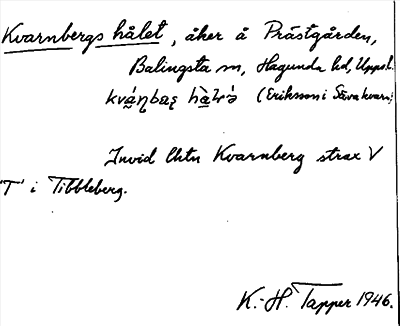 Kvarnbergs hålet, åker å Prästgården,
Balingsta sn, Hagunda hd, Uppsl.
(Eriksson i Sävakvarn)
Invid Utn Kvarnberg strax V
"T" i Tibbleberg.
K.-H. Tapper 1946.